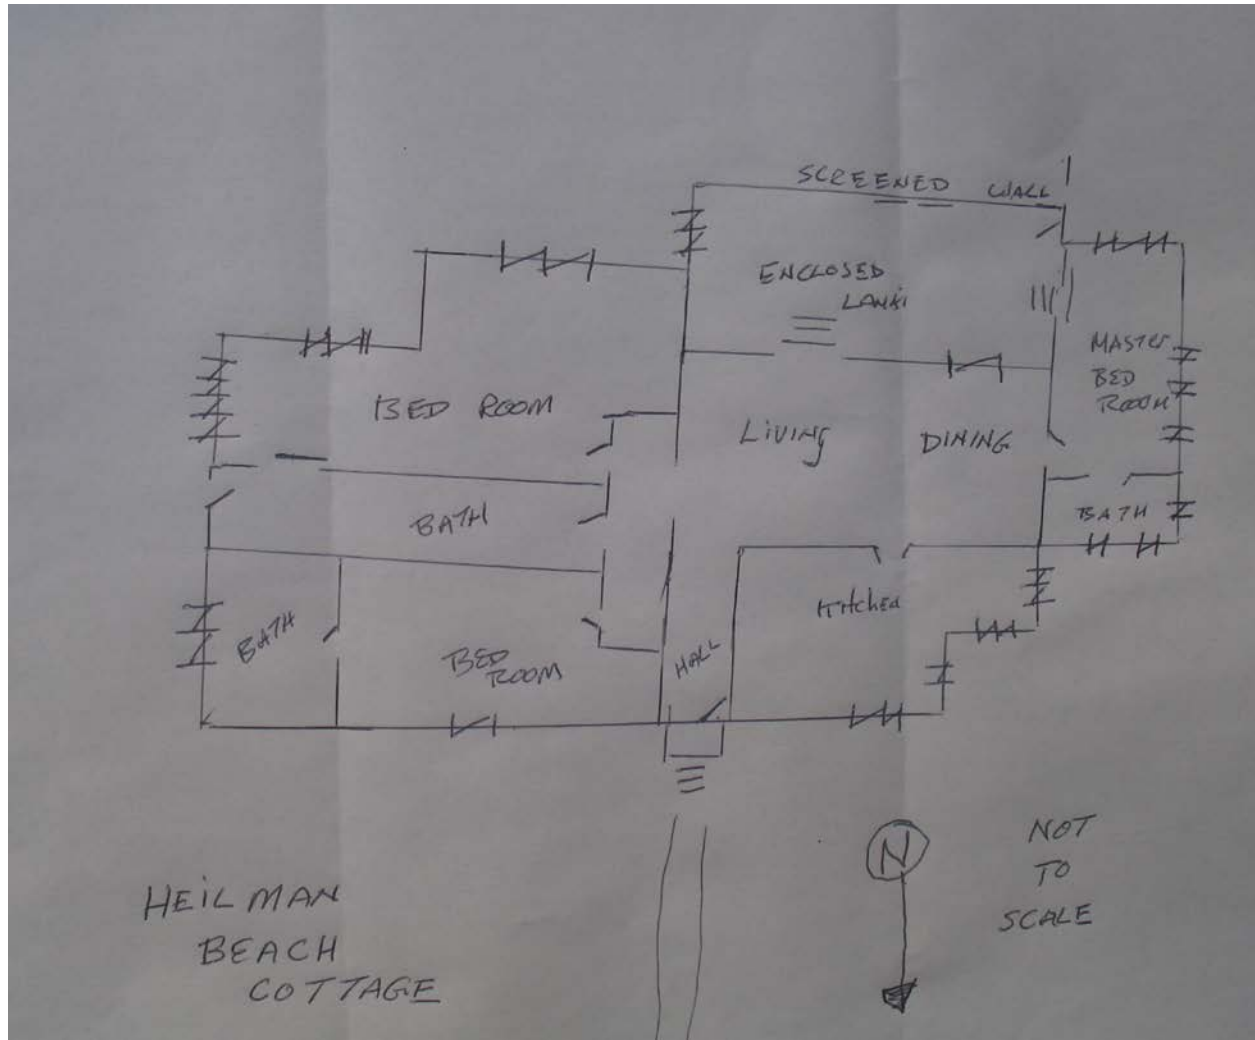 SCREENED WALL
ENCLOSED
LANAI
MASTER
BED
ROOM
BED ROOM
LIVING
DINING
BATH
BATH
KitcheN
BATH
BED
ROOM
HALL
N
NOT
TO
SCALE
HEILMAN
BEACH
COTTAGE